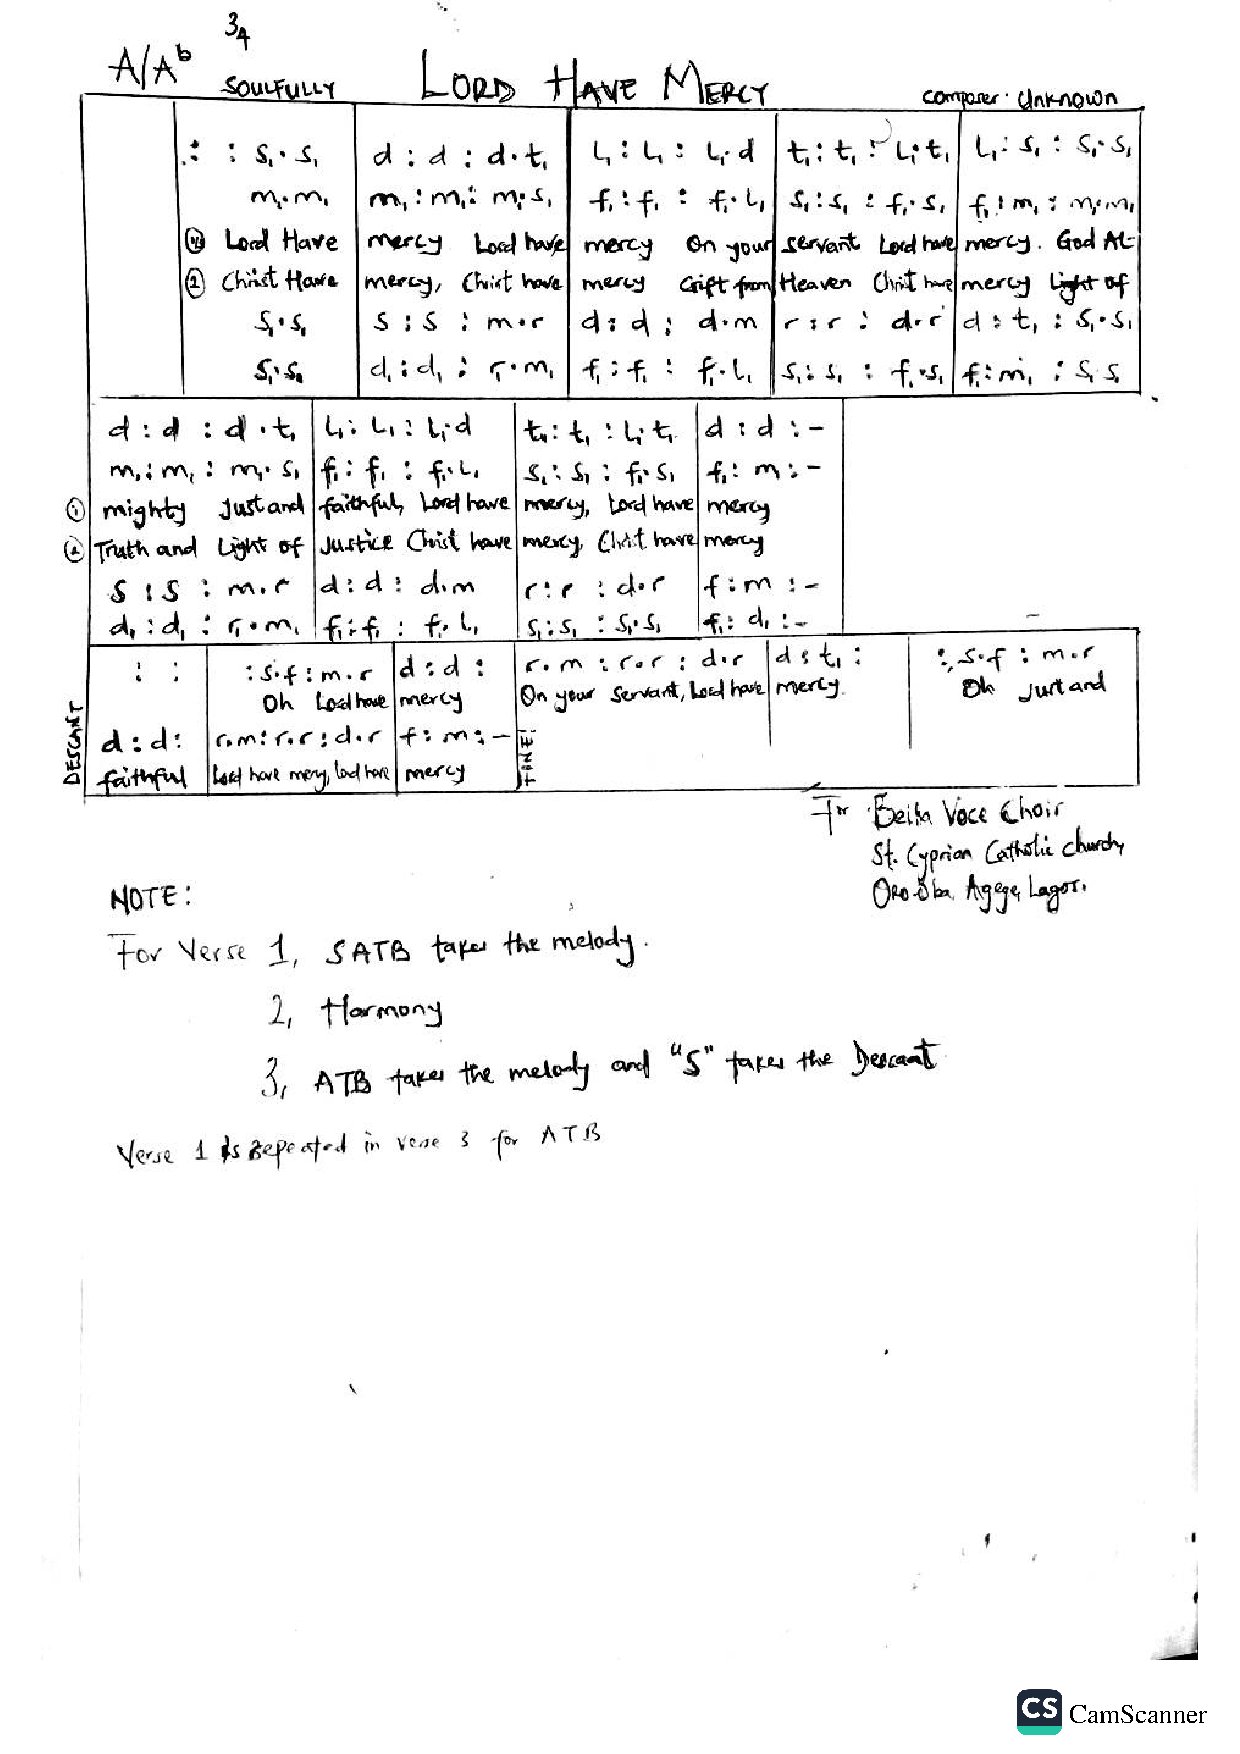 A/Ab 3 4
SOULFULLY LORD HAVE MERCY Composer: Unknown
: : s₁.s₁ | d : d : d.t₁ | l₁ : l₁ : l₁.d | t₁ : t₁ : l₁.t₁ | l₁ : s₁ : s₁.s₁
m₁.m₁ | m₁ : m₁ : m₁.s₁ | f₁ : f₁ : f₁.l₁ | s₁ : s₁ : f₁.s₁ | f₁ : m₁ : m₁.m₁
Lord Have | mercy Lord have | mercy On your | servant Lord have | mercy. God Al-
② Christ Have | mercy, Christ have | mercy Gift from | Heaven Christ have | mercy Light of
s₁.s₁ | s : s : m.r | d : d : d.m | r : r : d.r | d : t₁ : s₁.s₁
s₁.s₁ | d₁ : d₁ : r₁.m₁ | f₁ : f₁ : f₁.l₁ | s₁ : s₁ : f₁.s₁ | f₁ : m₁ : s₁ s₁
d : d : d.t₁ | l₁ : l₁ : l₁.d | t₁ : t₁ : l₁.t₁ | d : d : -
m₁ : m₁ : m₁.s₁ | f₁ : f₁ : f₁.l₁ | s₁ : s₁ : f₁.s₁ | f₁ : m : -
① mighty Just and | faithful, Lord have | mercy, Lord have | mercy
② Truth and Light of | Justice Christ have | mercy, Christ have | mercy
s : s : m.r | d : d : d.m | r : r : d.r | f : m : -
d₁ : d₁ : r₁.m₁ | f₁ : f₁ : f₁.l₁ | s₁ : s₁ : s₁.s₁ | f₁ : d₁ : -
DESCANT
: : | : s.f : m.r | d : d : | r.m : r.r : d.r | d : t₁ : | :, s.f : m.r
Oh Lord have | mercy | On your servant, Lord have | mercy. | Oh Just and
d : d : | r.m : r.r : d.r | f : m : - FINE:
faithful | Lord have mercy, Lord have | mercy
For Bella Voce Choir
St. Cyprian Catholic church,
Oko Oba, Agege, Lagos.
NOTE:
For Verse 1, SATB takes the melody.
2, Harmony
3, ATB takes the melody and "S" takes the Descant
Verse 1 is repeated in verse 3 for ATB
CS CamScanner